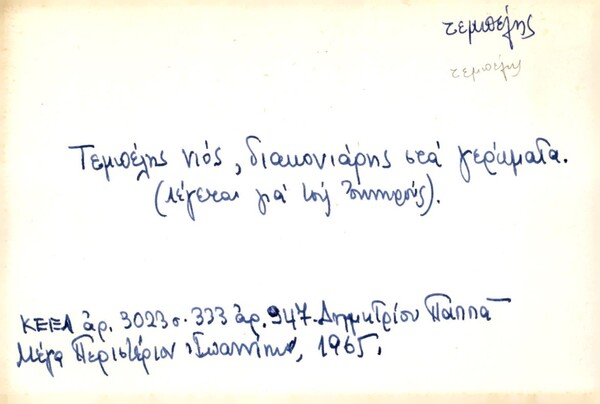 τεμπέλης
τεμπέλης
Τεμπέλης νιός, διακονιάρης στά γεράματα.
(λέγεται γιά τούς
ΚΕΕΛ ἀρ. 3023 σ. 333 ἀρ. 947. Δημητρίου Παππᾶ
Μέγα Περιστέριον Ἰωαννίνων, 1965.